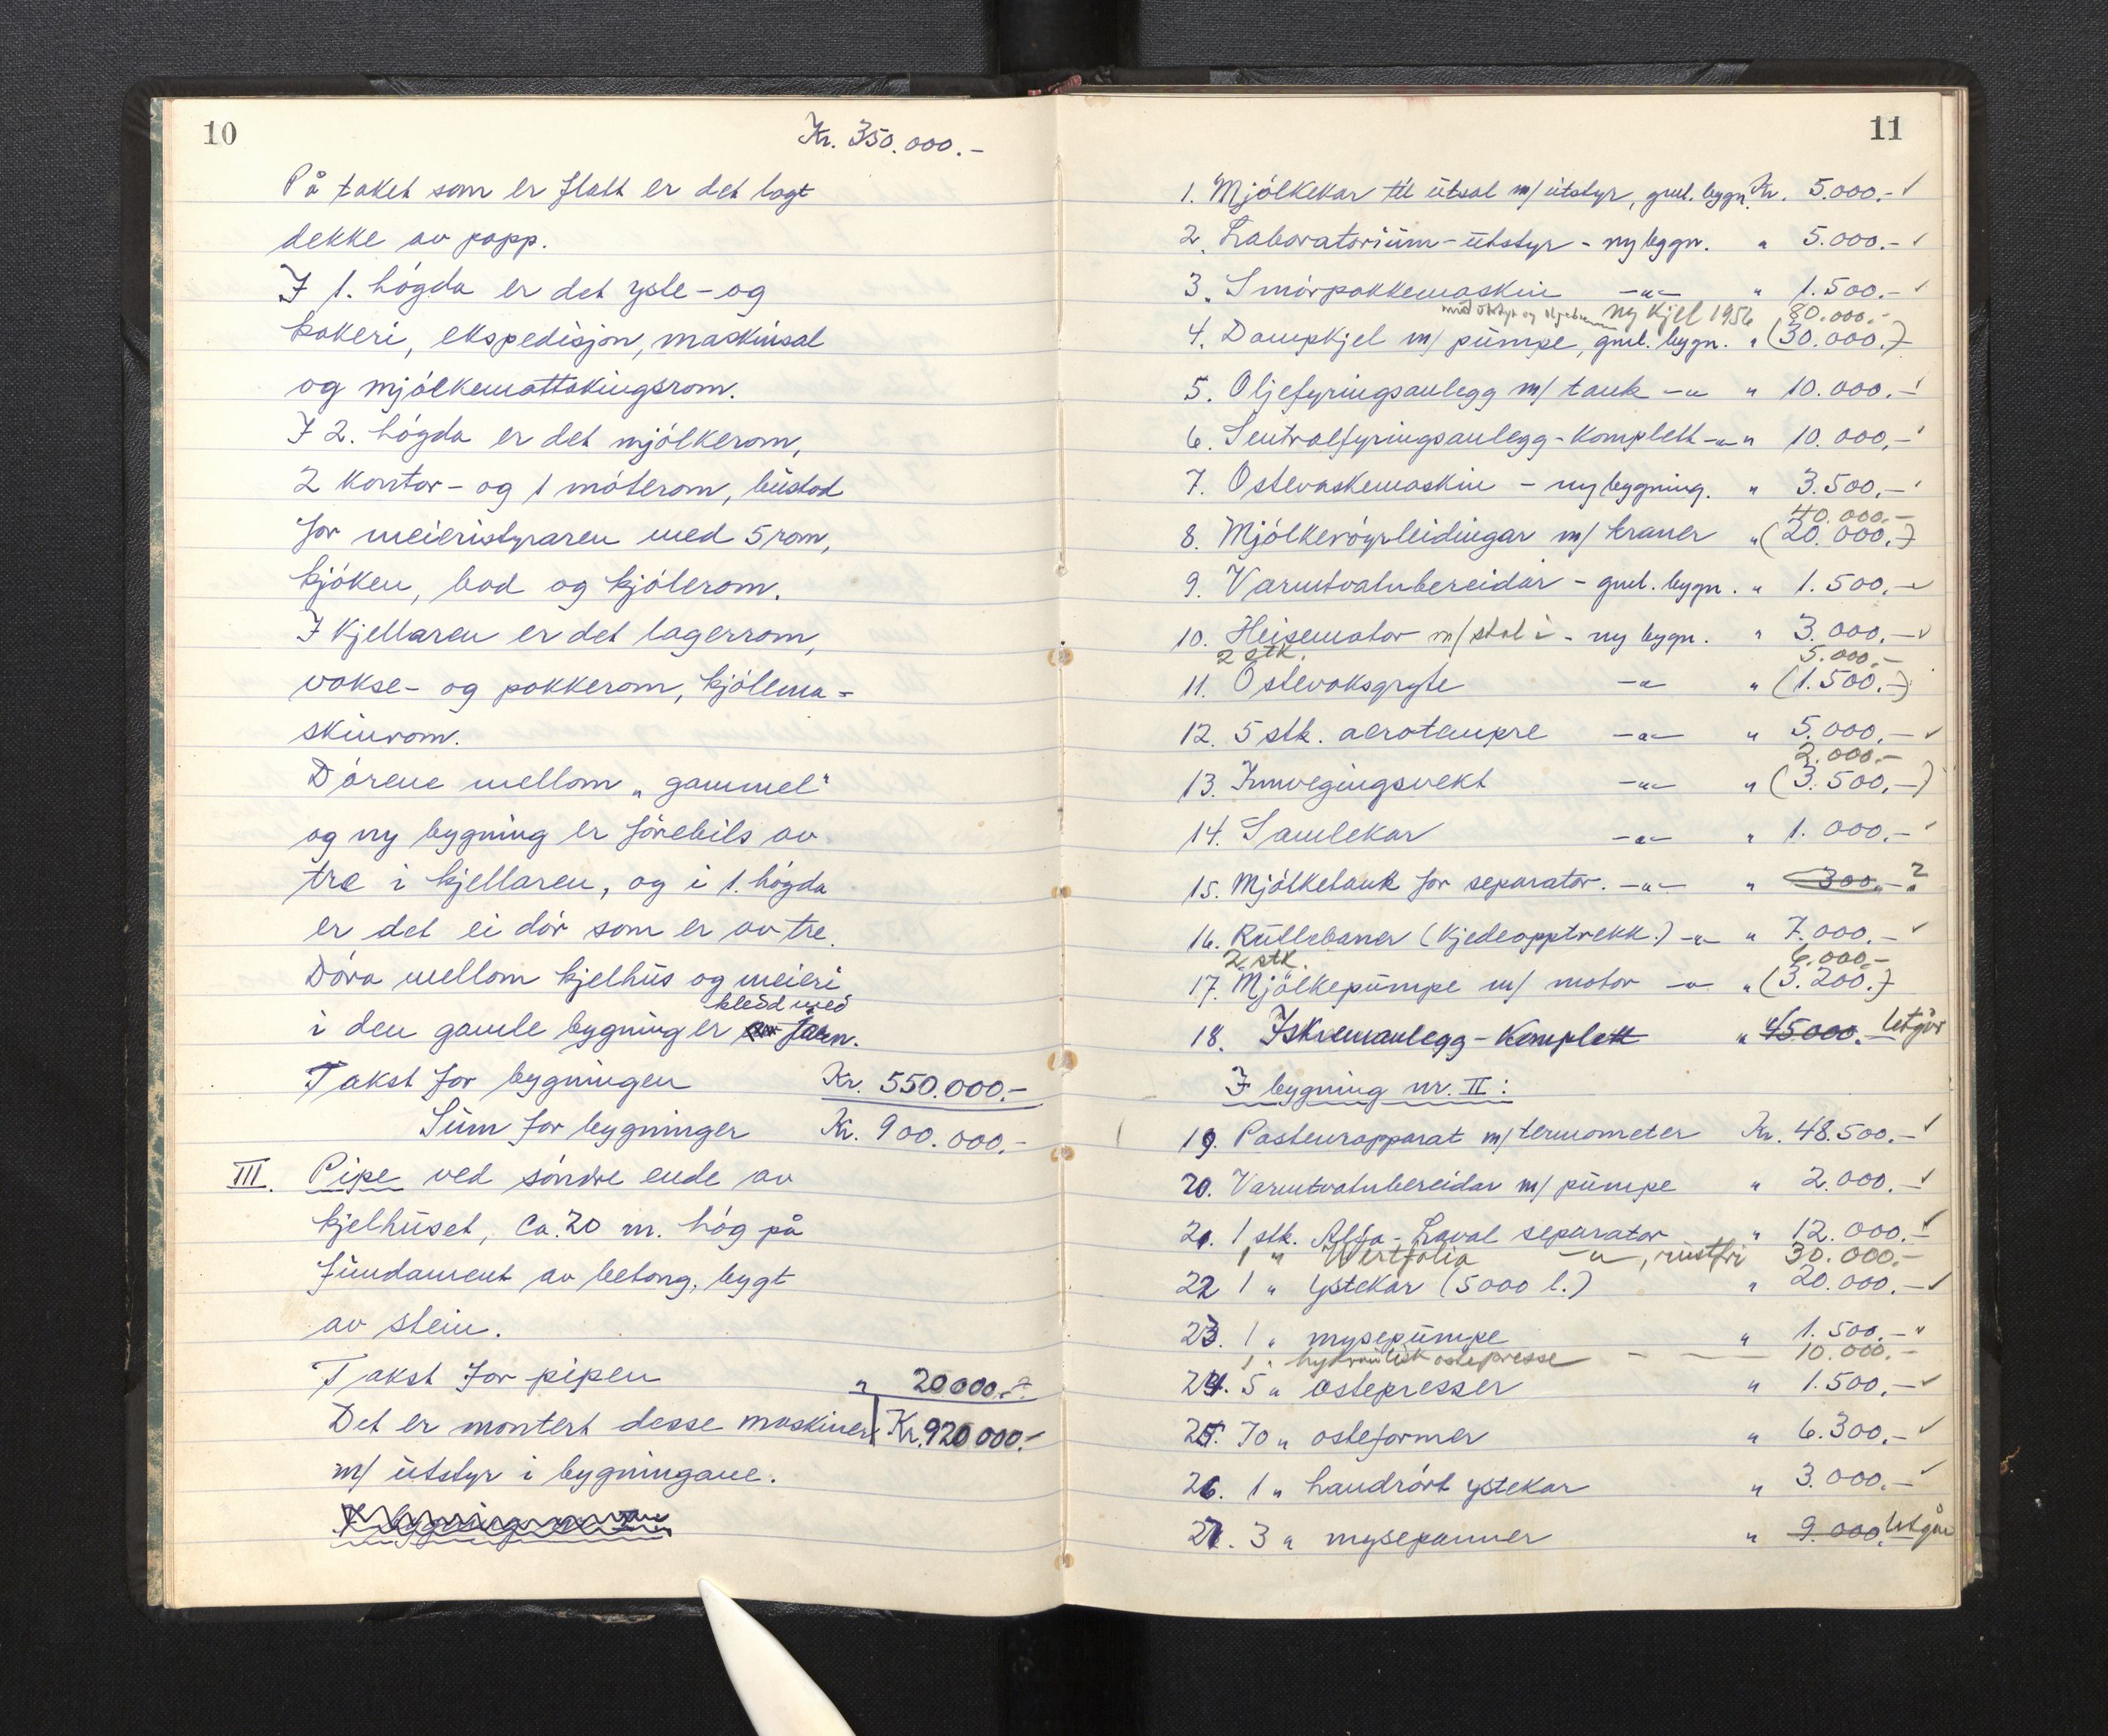 10
Kr. 350.000.-
På taket som er flatt er det lagt
dekke av papp.
I 1. högda er det yste- og
kokeri, ekspedisjon, maskinsal
og mjölkemottakingsrom.
I 2. högda er det mjölkerom,
2 kontor- og 1 möterom, bustad
for meieristyraren med 5 rom,
kjöken, bad og kjölerom.
I kjellaren er det lagerrom,
vokse- og pakkerom, kjölema-
skinrom.
Dörene mellom „gammel"
og ny bygning er förebils av
tre i kjellaren, og i 1. högda
er det ei dör som er av tre.
Döra mellom kjelhus og meieri
kledd med
i den gamle bygning er av jarn.
Takst for bygningen Kr. 550.000.-
Sum for bygninger Kr. 900.000.-
III. Pipe ved söndre ende av
kjelhuset, ca. 20 m. hög på
fundament av betong, bygt
av stein.
Takst for pipen " 20000.-
Det er montert desse maskiner Kr. 920000.-
m/ utstyr i bygningane.
11
1. Mjölkekar til utsal m/ utstyr, gml. bygn. Kr. 5.000.- ✓
2. Laboratorium-utstyr - ny bygn. " 5.000.- ✓
3. Smörpakkemaskin -"- " 1.500.- ✓
med utstyr og ny kjel 1956 80.000.-
4. Dampkjel m/ pumpe, gml. bygn. " (30.000.-)
5. Oljefyringsanlegg m/ tank -"- " 10.000.- ✓
6. Sentralfyringsanlegg - komplett -"- " 10.000.- ✓
7. Ostevaskemaskin - ny bygning. " 3.500.- ✓
40.000.-
8. Mjölkeröyrleidingar m/ kraner " (20.000.-)
9. Varmtvatnbereidar - gml. bygn. " 1.500.- ✓
10. Heisemotor m/ stol i - ny bygn. " 3.000.- ✓
2 stk. 5.000.-
11. Ostevoksgryte -"- " (1.500.-)
12. 5 stk. aerotempre -"- " 5.000.- ✓
2.000.-
13. Innvegingsvekt -"- " (3.500.-)
14. Samlekar -"- " 1.000.- ✓
15. Mjölketank for separator. -"- " 300.- ?
16. Rullebaner (kjedeopptrekk.) -"- " 7.000.- ✓
2 stk. 6.000.-
17. Mjölkepumpe m/ motor -"- " (3.200.-)
18. Iskremanlegg - komplett " 45000.- Utgår
I bygning nr. II:
19. Pasteurapparat m/ termometer Kr. 48.500.- ✓
20. Varmtvatnbereidar m/ pumpe " 2.000.- ✓
21. 1 stk. Alfa-Laval separator " 12.000.- ✓
1 " Westfalia -"-, rustfri 30.000.-
22 1 " ystekar (5000 l.) " 20.000.- ✓
23. 1 " mysepumpe " 1.500.- "
1 " hydraulisk ostepresse - — 10.000.-
24. 5 " ostepresser " 1.500.- ✓
25. 70 " osteformer " 6.300.- ✓
26. 1 " handrört ystekar " 3.000.- ✓
27. 3 " mysepanner " 9.000.- Utgår